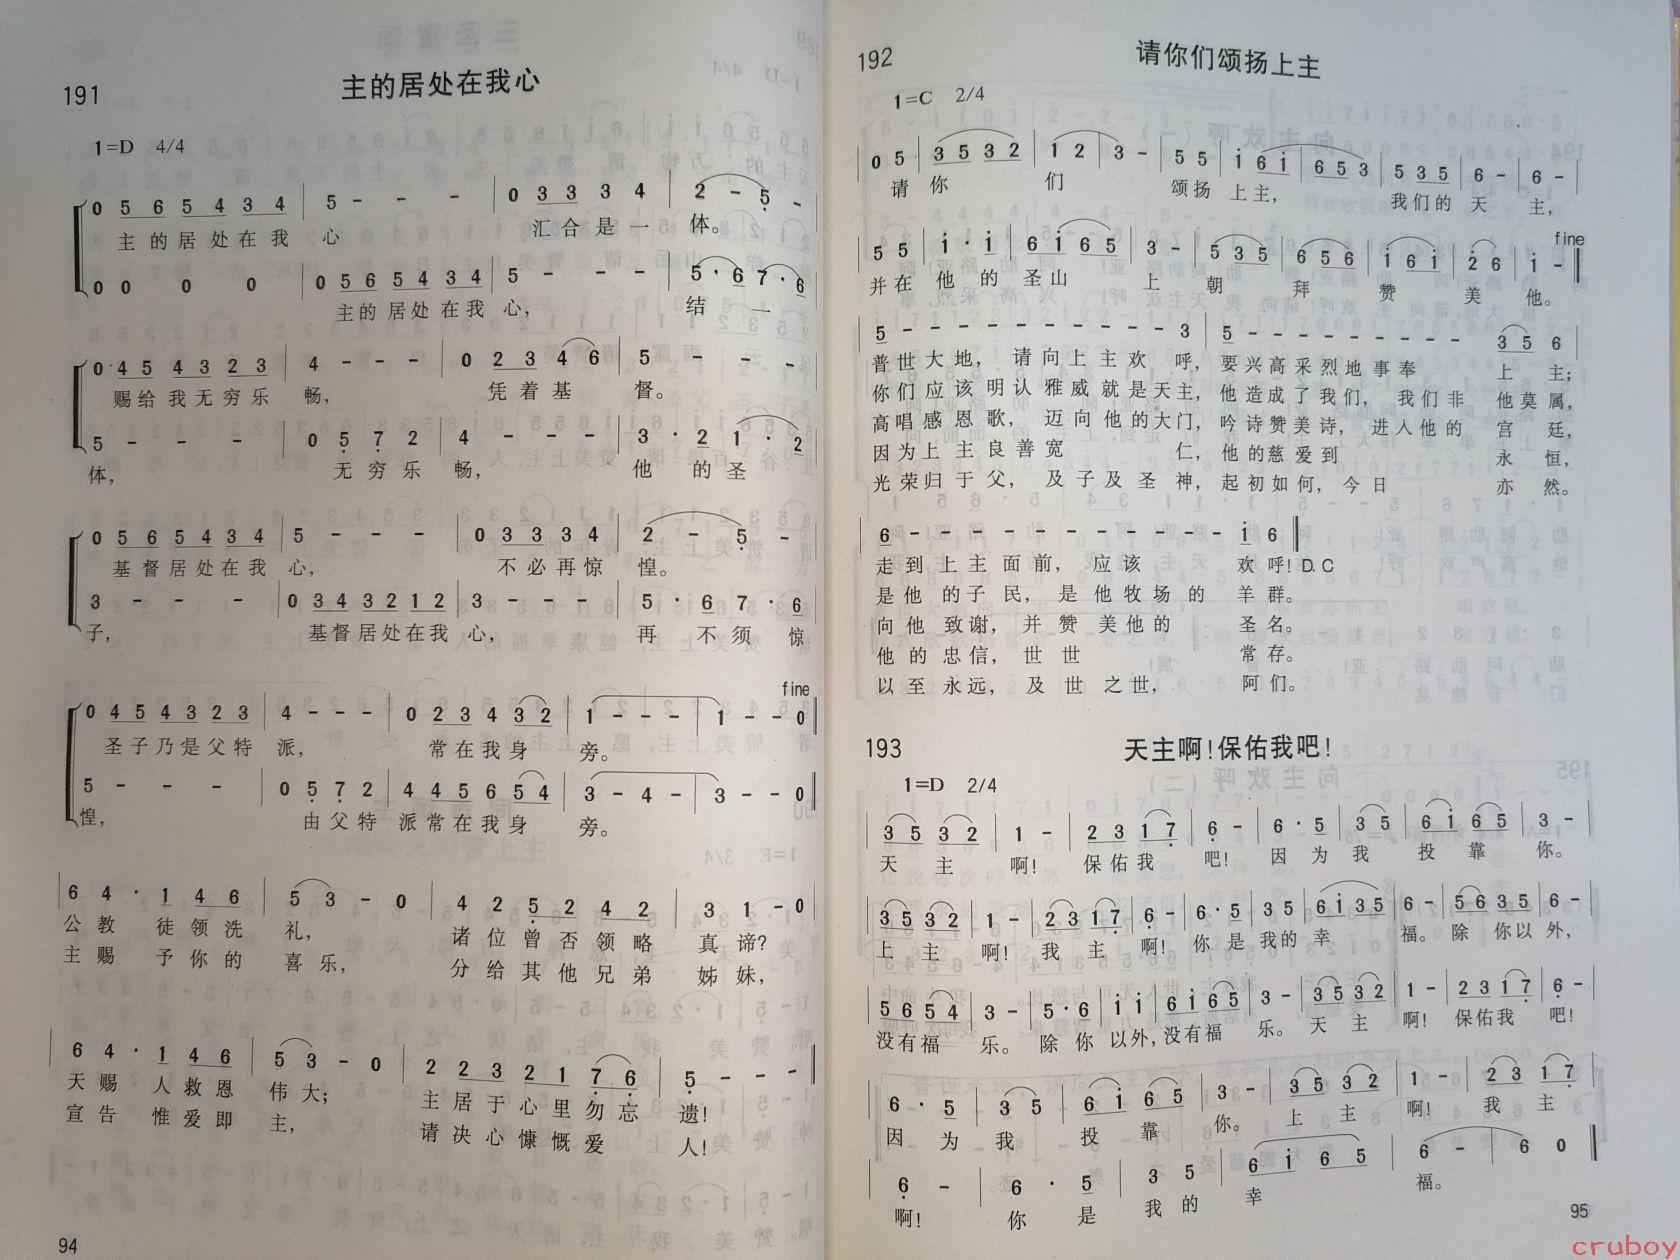 191 主的居处在我心
1=D 4/4
0 5 6 5 4 3 4 | 5 - - - | 0 3 3 3 4 | 2 - 5 -
主的居处在我 心 汇合是一 体。
0 0 0 0 | 0 5 6 5 4 3 4 | 5 - - - | 5 · 6 7 · 6
主的居处在我 心, 结 一
0 4 5 4 3 2 3 | 4 - - - | 0 2 3 4 6 | 5 - - -
赐给我无穷乐 畅, 凭着基 督。
5 - - - | 0 5 7 2 | 4 - - - | 3 · 2 1 · 2
体, 无穷乐 畅, 他 的圣
0 5 6 5 4 3 4 | 5 - - - | 0 3 3 3 4 | 2 - 5 -
基督居处在我 心, 不必再惊 惶。
3 - - - | 0 3 4 3 2 1 2 | 3 - - - | 5 · 6 7 · 6
子, 基督居处在我 心, 再 不须 惊
fine
0 4 5 4 3 2 3 | 4 - - - | 0 2 3 4 3 2 | 1 - - - | 1 - - 0
圣子乃是父特 派, 常在我身 旁。
5 - - - | 0 5 7 2 | 4 4 5 6 5 4 | 3 - 4 - | 3 - - 0
惶, 由父特 派常在我身 旁。
6 4 · 1 4 6 | 5 3 - 0 | 4 2 5 2 4 2 | 3 1 - 0
公教 徒领洗 礼, 诸位曾否领略 真谛?
主赐 予你的 喜乐, 分给其他兄弟 姊妹,
6 4 · 1 4 6 | 5 3 - 0 | 2 2 3 2 1 7 6 | 5 - - -
天赐 人救恩 伟大; 主居于心里勿忘 遗!
宣告 惟爱即 主, 请决心慷慨爱 人!
94
192 请你们颂扬上主
1=C 2/4
0 5 | 3 5 3 2 | 1 2 | 3 - | 5 5 | i 6 i | 6 5 3 | 5 3 5 | 6 - | 6 - |
请 你 们 颂扬 上主, 我们的 天 主,
fine
5 5 | i · i | 6 i 6 5 | 3 - | 5 3 5 | 6 5 6 | i 6 i | 2 6 | i -
并在 他 的 圣山 上 朝 拜 赞 美 他。
5 - - - - - - - - - - 3 | 5 - - - - - - - - - 3 5 6
普世大地, 请向上主欢 呼, 要兴高采烈地事奉 上 主;
你们应该明认雅威就是天主, 他造成了我们, 我们非 他莫属,
高唱感恩歌, 迈向他的大门, 吟诗赞美诗, 进入他的 宫 廷,
因为上主良善宽 仁, 他的慈爱到 永 恒,
光荣归于父, 及子及圣神, 起初如何, 今日 亦 然。
6 - - - - - - - - - - - i 6
走到上主面前, 应该 欢呼! D.C
是他的子民, 是他牧场的 羊群。
向他致谢, 并赞美他的 圣名。
他的忠信, 世世 常存。
以至永远, 及世之世, 阿们。
193 天主啊!保佑我吧!
1=D 2/4
3 5 3 2 | 1 - | 2 3 1 7 | 6 - | 6 · 5 | 3 5 | 6 i 6 5 | 3 - |
天 主 啊! 保佑我 吧! 因 为 我 投 靠 你。
3 5 3 2 | 1 - | 2 3 1 7 | 6 - | 6 · 5 | 3 5 | 6 i 3 5 | 6 - | 5 6 3 5 | 6 -
上 主 啊! 我 主 啊! 你 是 我的 幸 福。 除 你以 外,
5 6 5 4 | 3 - | 5 · 6 | i i | 6 i 6 5 | 3 - | 3 5 3 2 | 1 - | 2 3 1 7 | 6 -
没有福 乐。 除 你 以外, 没有福 乐。 天 主 啊! 保佑我 吧!
6 · 5 | 3 5 | 6 i 6 5 | 3 - | 3 5 3 2 | 1 - | 2 3 1 7
因 为 我 投 靠 你。 上 主 啊! 我 主
6 - | 6 · 5 | 3 5 | 6 i 6 5 | 6 - | 6 0
啊! 你 是 我 的 幸 福。
95
cruboy